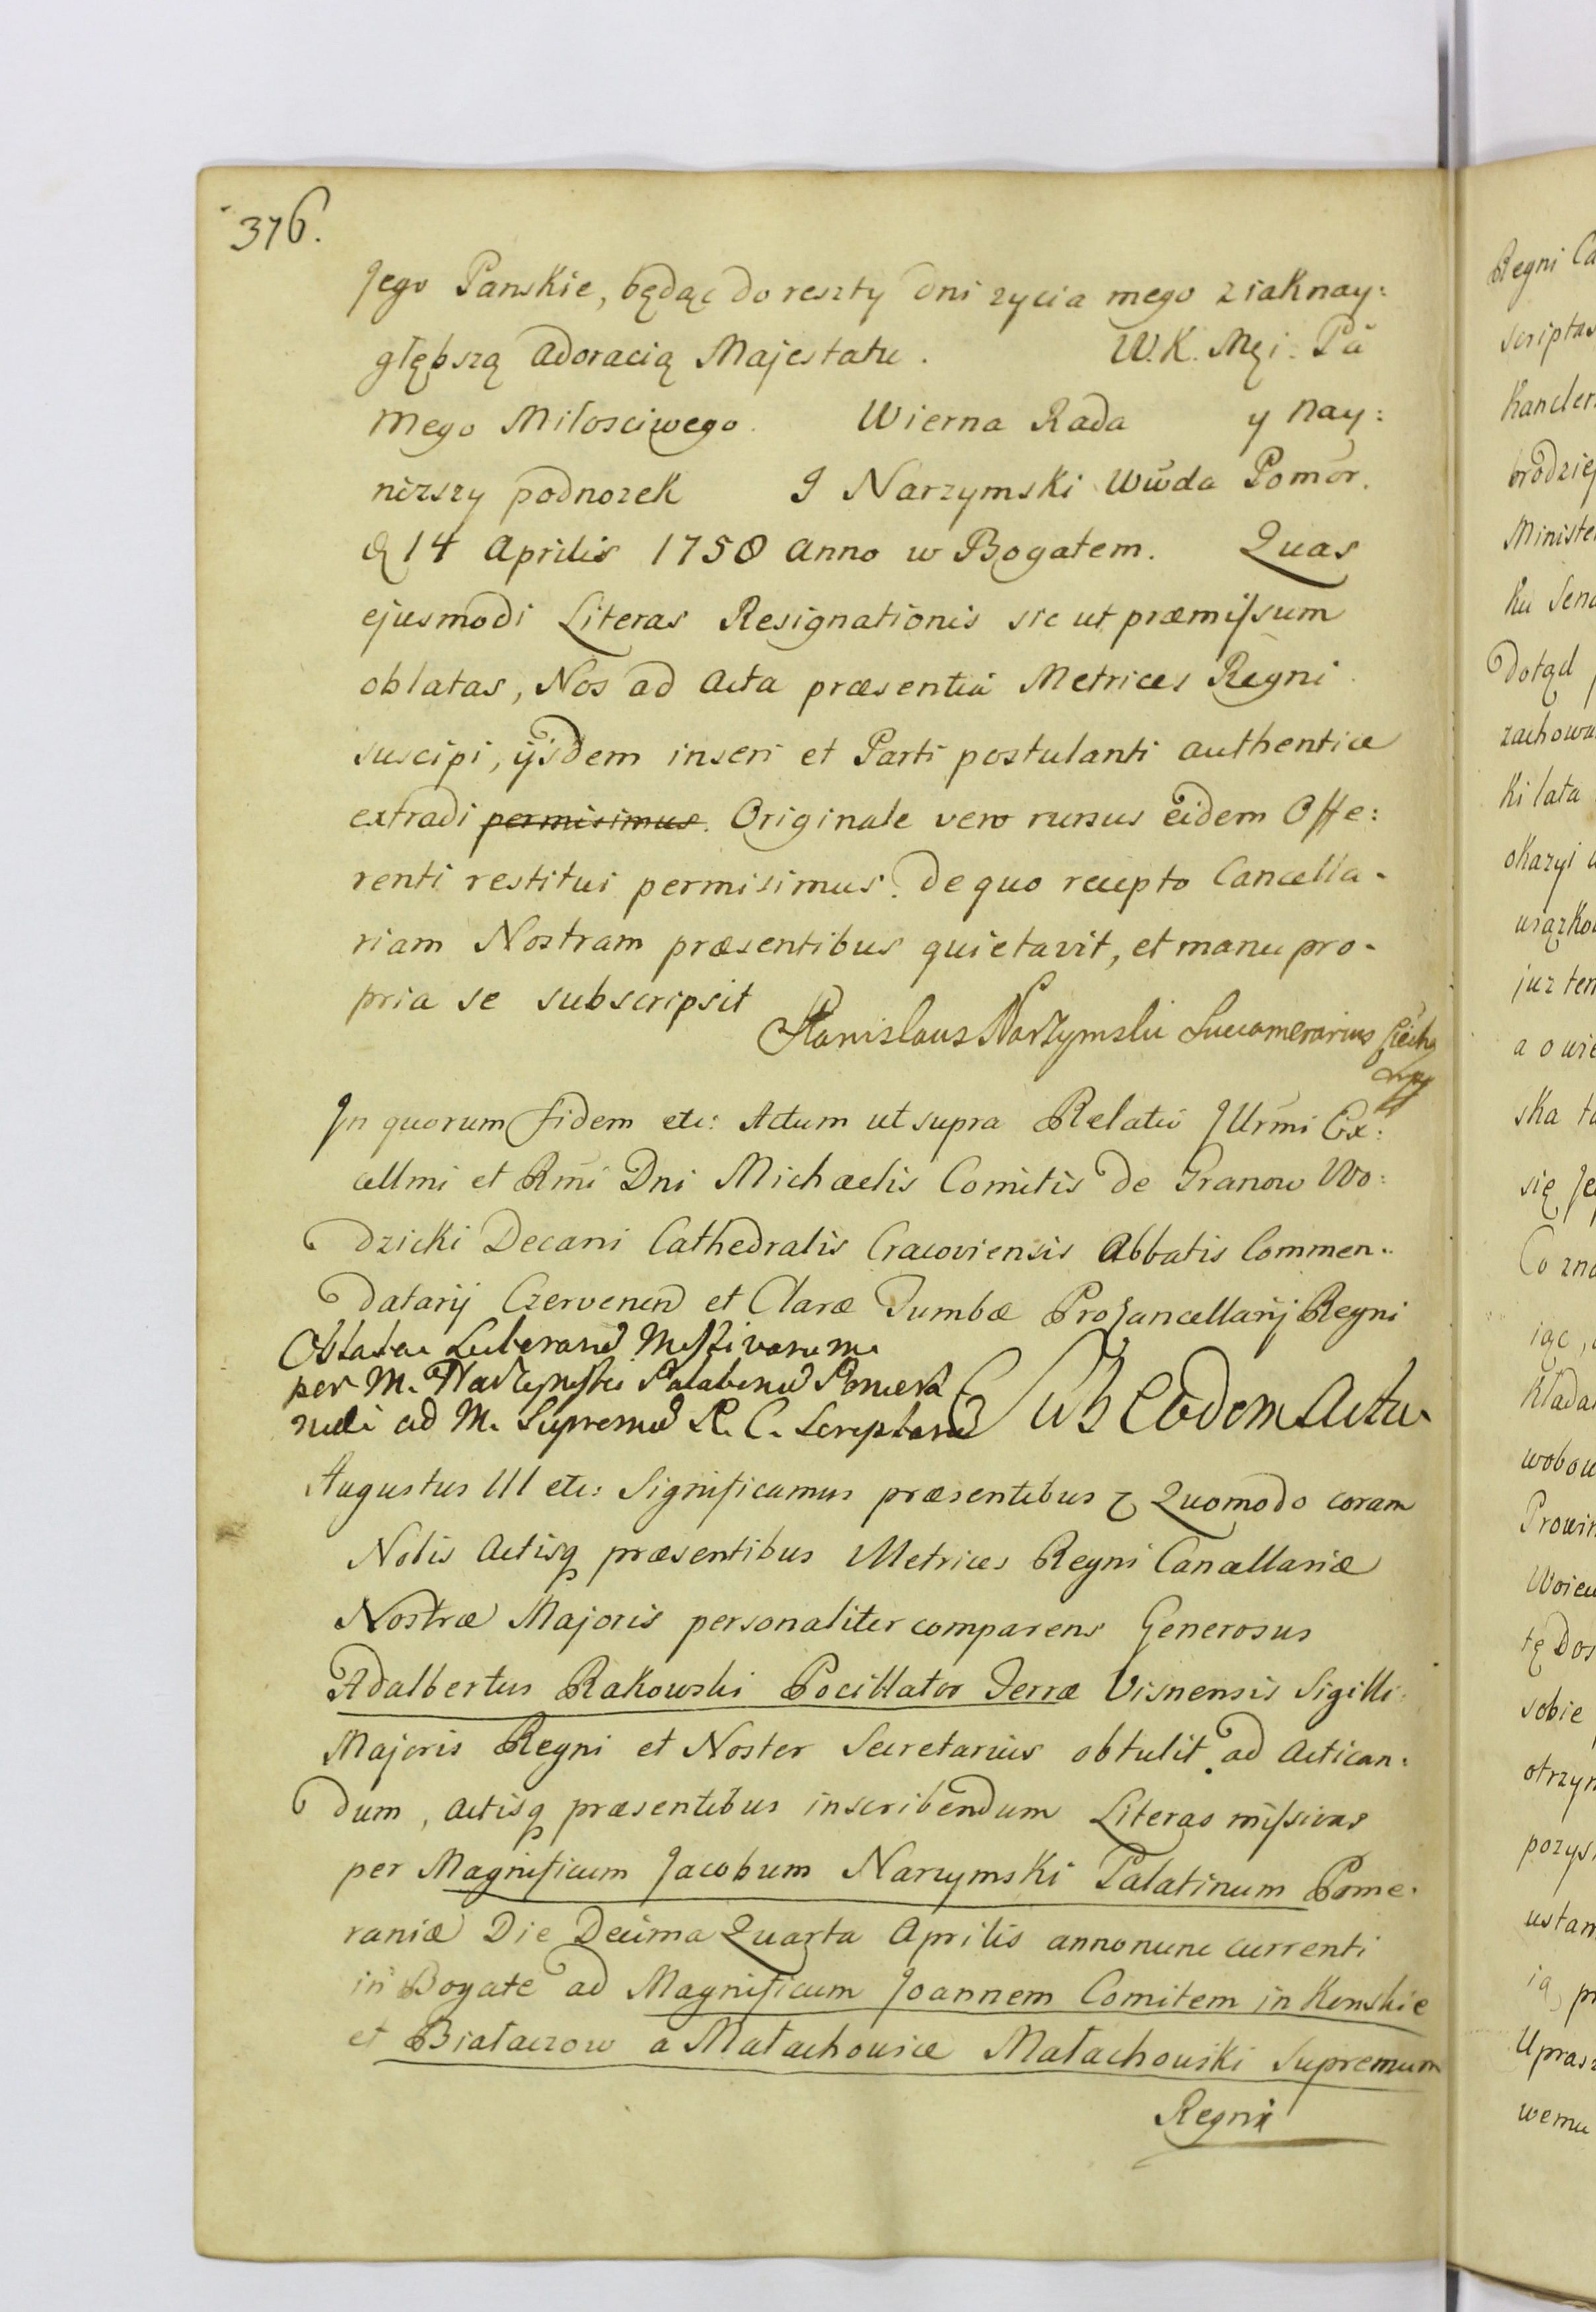 376.
Jego Panskie, będąc do reszty dni zycia mego z iaknay:
głębszą adoracią Majestatu. W.K. Mći. Pā
mego Miłosciwego. Wierna Rada y nay:
nizszy podnozek J Narzymski Wwda Pomor.
D 14 Aprilis 1758 Anno w Bogatem. Quas
ejusmodi Literas Resignationis sic ut præmissum
oblatas, Nos ad Acta præsentia Metrices Regni
suscipi, ijsdem inseri et Parti postulanti authentice
extradi permisimus. Originale vero rursus eidem Offe:
renti restitui permisimus. de quo recepto Cancella-
riam Nostram præsentibus quietavit, et manu pro-
pria se subscripsit
Stanislaus Narzymski Succamerarius Ciech
mpp
In quorum fidem etc: Actum ut supra Relatio Jllrmi Ex:
cellmi et Rmi Dni Michaelis Comitis de Granow Wo:
dzicki Decani Cathedralis Cracoviensis Abbatis Commen-
datarij Czervenen et Claræ Tumbæ ProCancellarij Regni
Oblata Literarū Missivarum
per M. Narzymski Palatinū Pomera
niæ ad M. Supremū R. C. Scriptarū
Sub Eodem Actu
Augustus III etc: Significamus præsentibus &c Quomodo coram
Nobis Actisq præsentibus Metrices Regni Cancellariæ
Nostræ Majoris personaliter comparens Generosus
Adalbertus Rakowski Pocillator Terræ Visnensis Sigilli
Majoris Regni et Noster Secretarius obtulit ad Actican:
dum, Actisq præsentibus inscribendum Literas missivas
per Magnificum Jacobum Narzymski Palatinum Pome-
raniæ Die Decima Quarta Aprilis anno nunc currenti
in Bogate ad Magnificum Joannem Comitem in Konskie
et Białaczow a Małachowice Małachowski Supremum
Regni
Regni Ca
scriptas
Kancler
brodziej
Ministe
ku Sena
Dotąd
zachowa
ki lata
okazyi
wiązko
juz ten
a o wie
ska ta
się Je
Co zna
iąc,
kłada
wobow
Prowin
Woiew
tę Dos
sobie
otrzym
pozys
ustan
ią pr
Uprasz
wemu